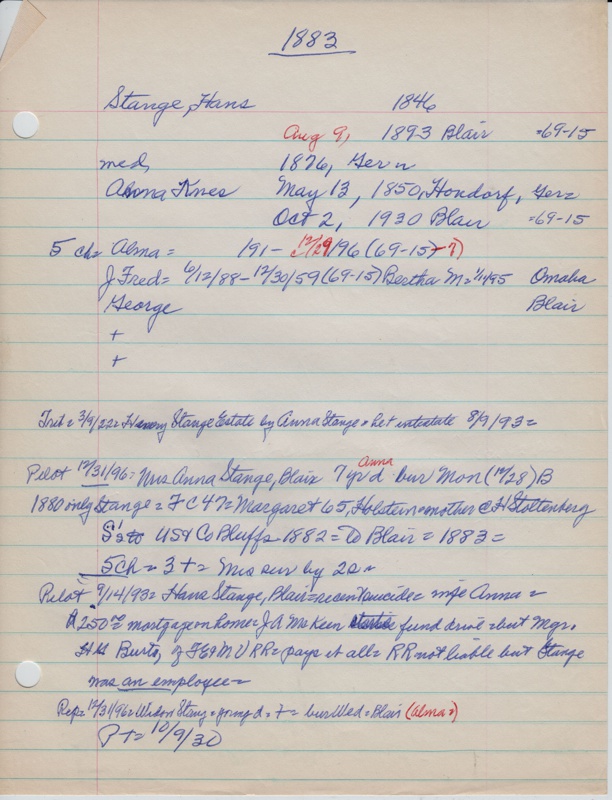 1883
Stange, Hans 1846
Aug 9, 1893 Blair =69-15
med, 1876, Ger
Anna Knes May 13, 1850, Hondorf, Ger=
Oct 2, 1930 Blair =69-15
5 ch= Alma = 191- 12/29/96 (69-15+?)
J Fred= 6/12/88-12/30/59 (69-15) Bertha M= Omaha
George Blair
+
+
Trib= 3/9/22= Stange Estate by Anna Stange= het intestate 8/9/93=
Anna
Pilot 12/31/96= Mrs Anna Stange, Blair 7 yr d bur Mon (12/28) B
1880 only Stange = F C 47= Margaret 65, Holstein=mother C H Stoltenberg
S's to US & Co Bluffs 1882= to Blair = 1883=
5 Ch = 3 + = Mrs sur by 2s=
Pilot 9/14/93= Hans Stange, Blair=recent suicide= wife Anna=
A $250 mortgage on home= J A McKeen fund drive=but Mgr.
H G Burt, of F E & M V RR= pays it all= RR not liable but Stange
was an employee=
Rep= 12/31/96= Widow Stang= young d= + = bur Wed= Blair (Alma?)
P += 10/9/30